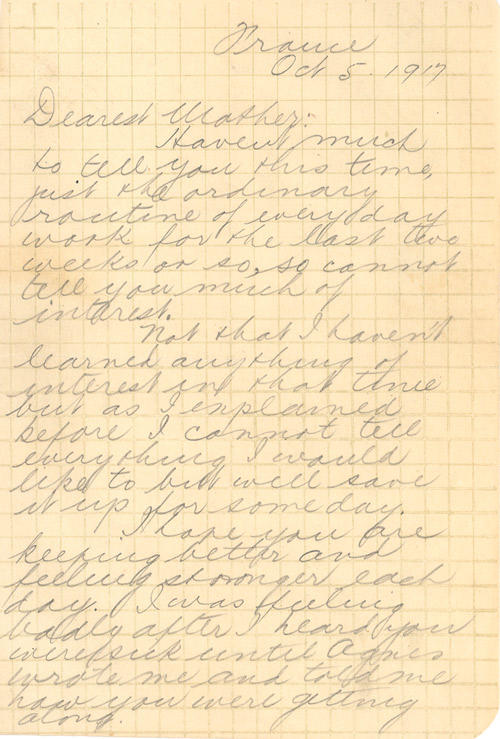 France
Oct 5. 1917
Dearest Mother:
Haven't much
to tell you this time,
just the ordinary
routine of every day
work for the last two
weeks or so, so cannot
tell you much of
interest.
Not that I haven't
learned anything of
interest in that time
but as I explained
before I cannot tell
everything I would
like to but will save
it up for some day.
I hope you are
keeping better and
feeling stronger each
day. I was feeling
badly after I heard you
were sick until Agnes
wrote me and told me
how you were getting
along.